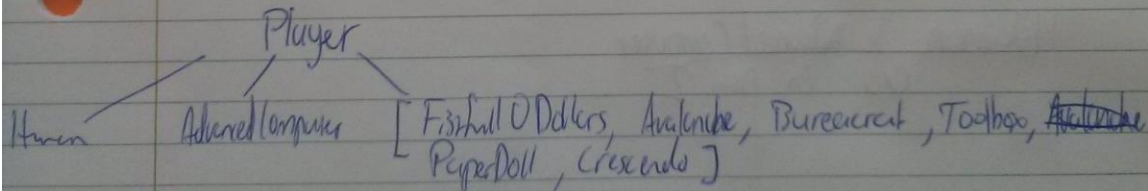 Player
Human AdvancedComputer [Fistfull O Dollars, Avalanche, Bureaucrat, Toolbox,
PaperDoll, Crescendo]